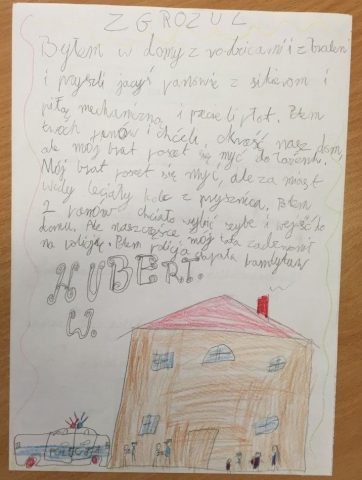 ZGROZUL
Byłem w domy z rodzicami i z bratem
i pszyszli jacyś panowie z sikierom i
piłą mechaniczną i pszecieli płot. Btem
dwoch panów chcieli okraść nasz dom,
ale mój brat poszet się myć do łazienki.
Mój brat poszet się myć, ale za miast
wody leciały kole z prysznica. Btem
2 panów chciało wybić szybe i wejść do
domu. Ale naszczęście mój tata zadzwonił
na policję. Btem policja złapała bandytów
HUBERT.
W.
POLICJA